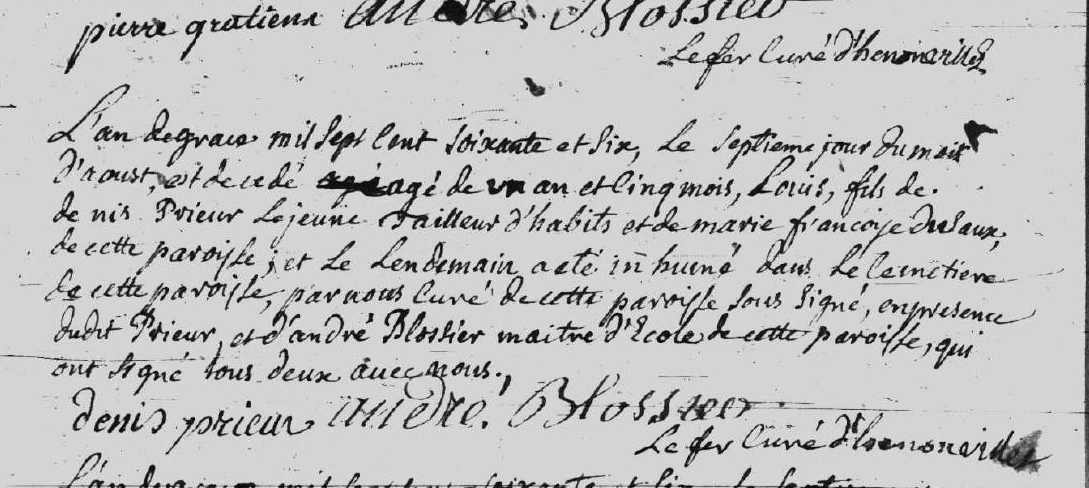 pierre gratiena andré. Blossier
Lefer Curé d'henonville
L'an de grace mil sept Cent soixante et six, Le septieme jour du mois
d'aoust, est decedé agé de un an et Cinq mois, Louis, fils de
de nis Prieur Lejeune Tailleur d'habits et de marie françoise
de cette paroisse ; et Le Lendemain a eté inhumé dans Le Cemetiere
de cette paroisse, par nous Curé de cette paroisse sous signé, en presence
dudit Prieur, et d'andré Blossier maitre d'Ecole de cette paroisse, qui
ont signé tous deux avec nous.,
denis prieur andré. Blossier
Lefer Curé d'henonville
L'an de grace mil sept Cent soixante et six Le septieme